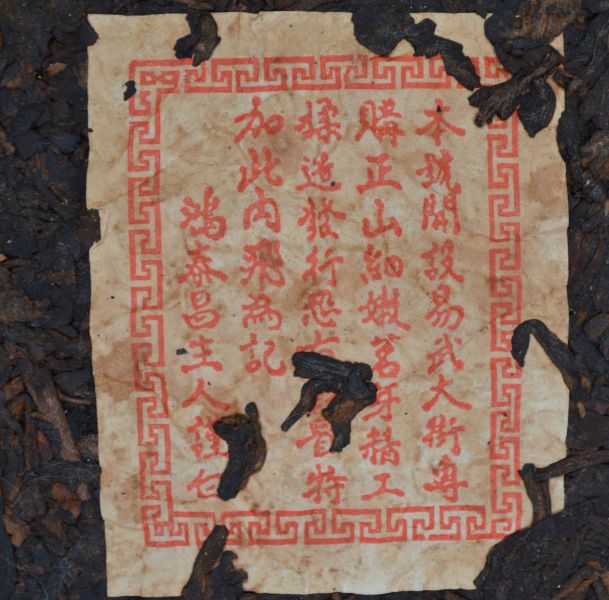 本號開設易武大街專
購正山細嫩茗牙精工
揉造發行恐有冒特
加此內飛為記
鴻泰昌主人謹